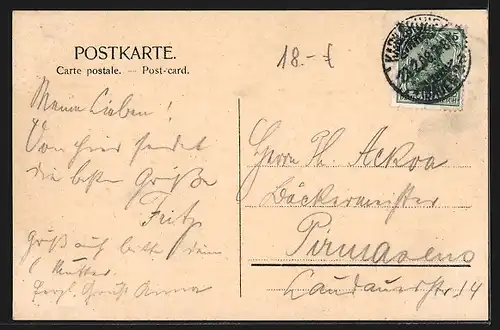 POSTKARTE.
Carte postale. — Post-card.
18.-
Meine Lieben!
Von hier sendet
die besten Grüße
Fritz
Grüß auch bitte deine
Mutter
Herzl. Gruß Anna
Herrn Ph. Ackva
Bäckermeister
Pirmasens
Landauerstr. 14